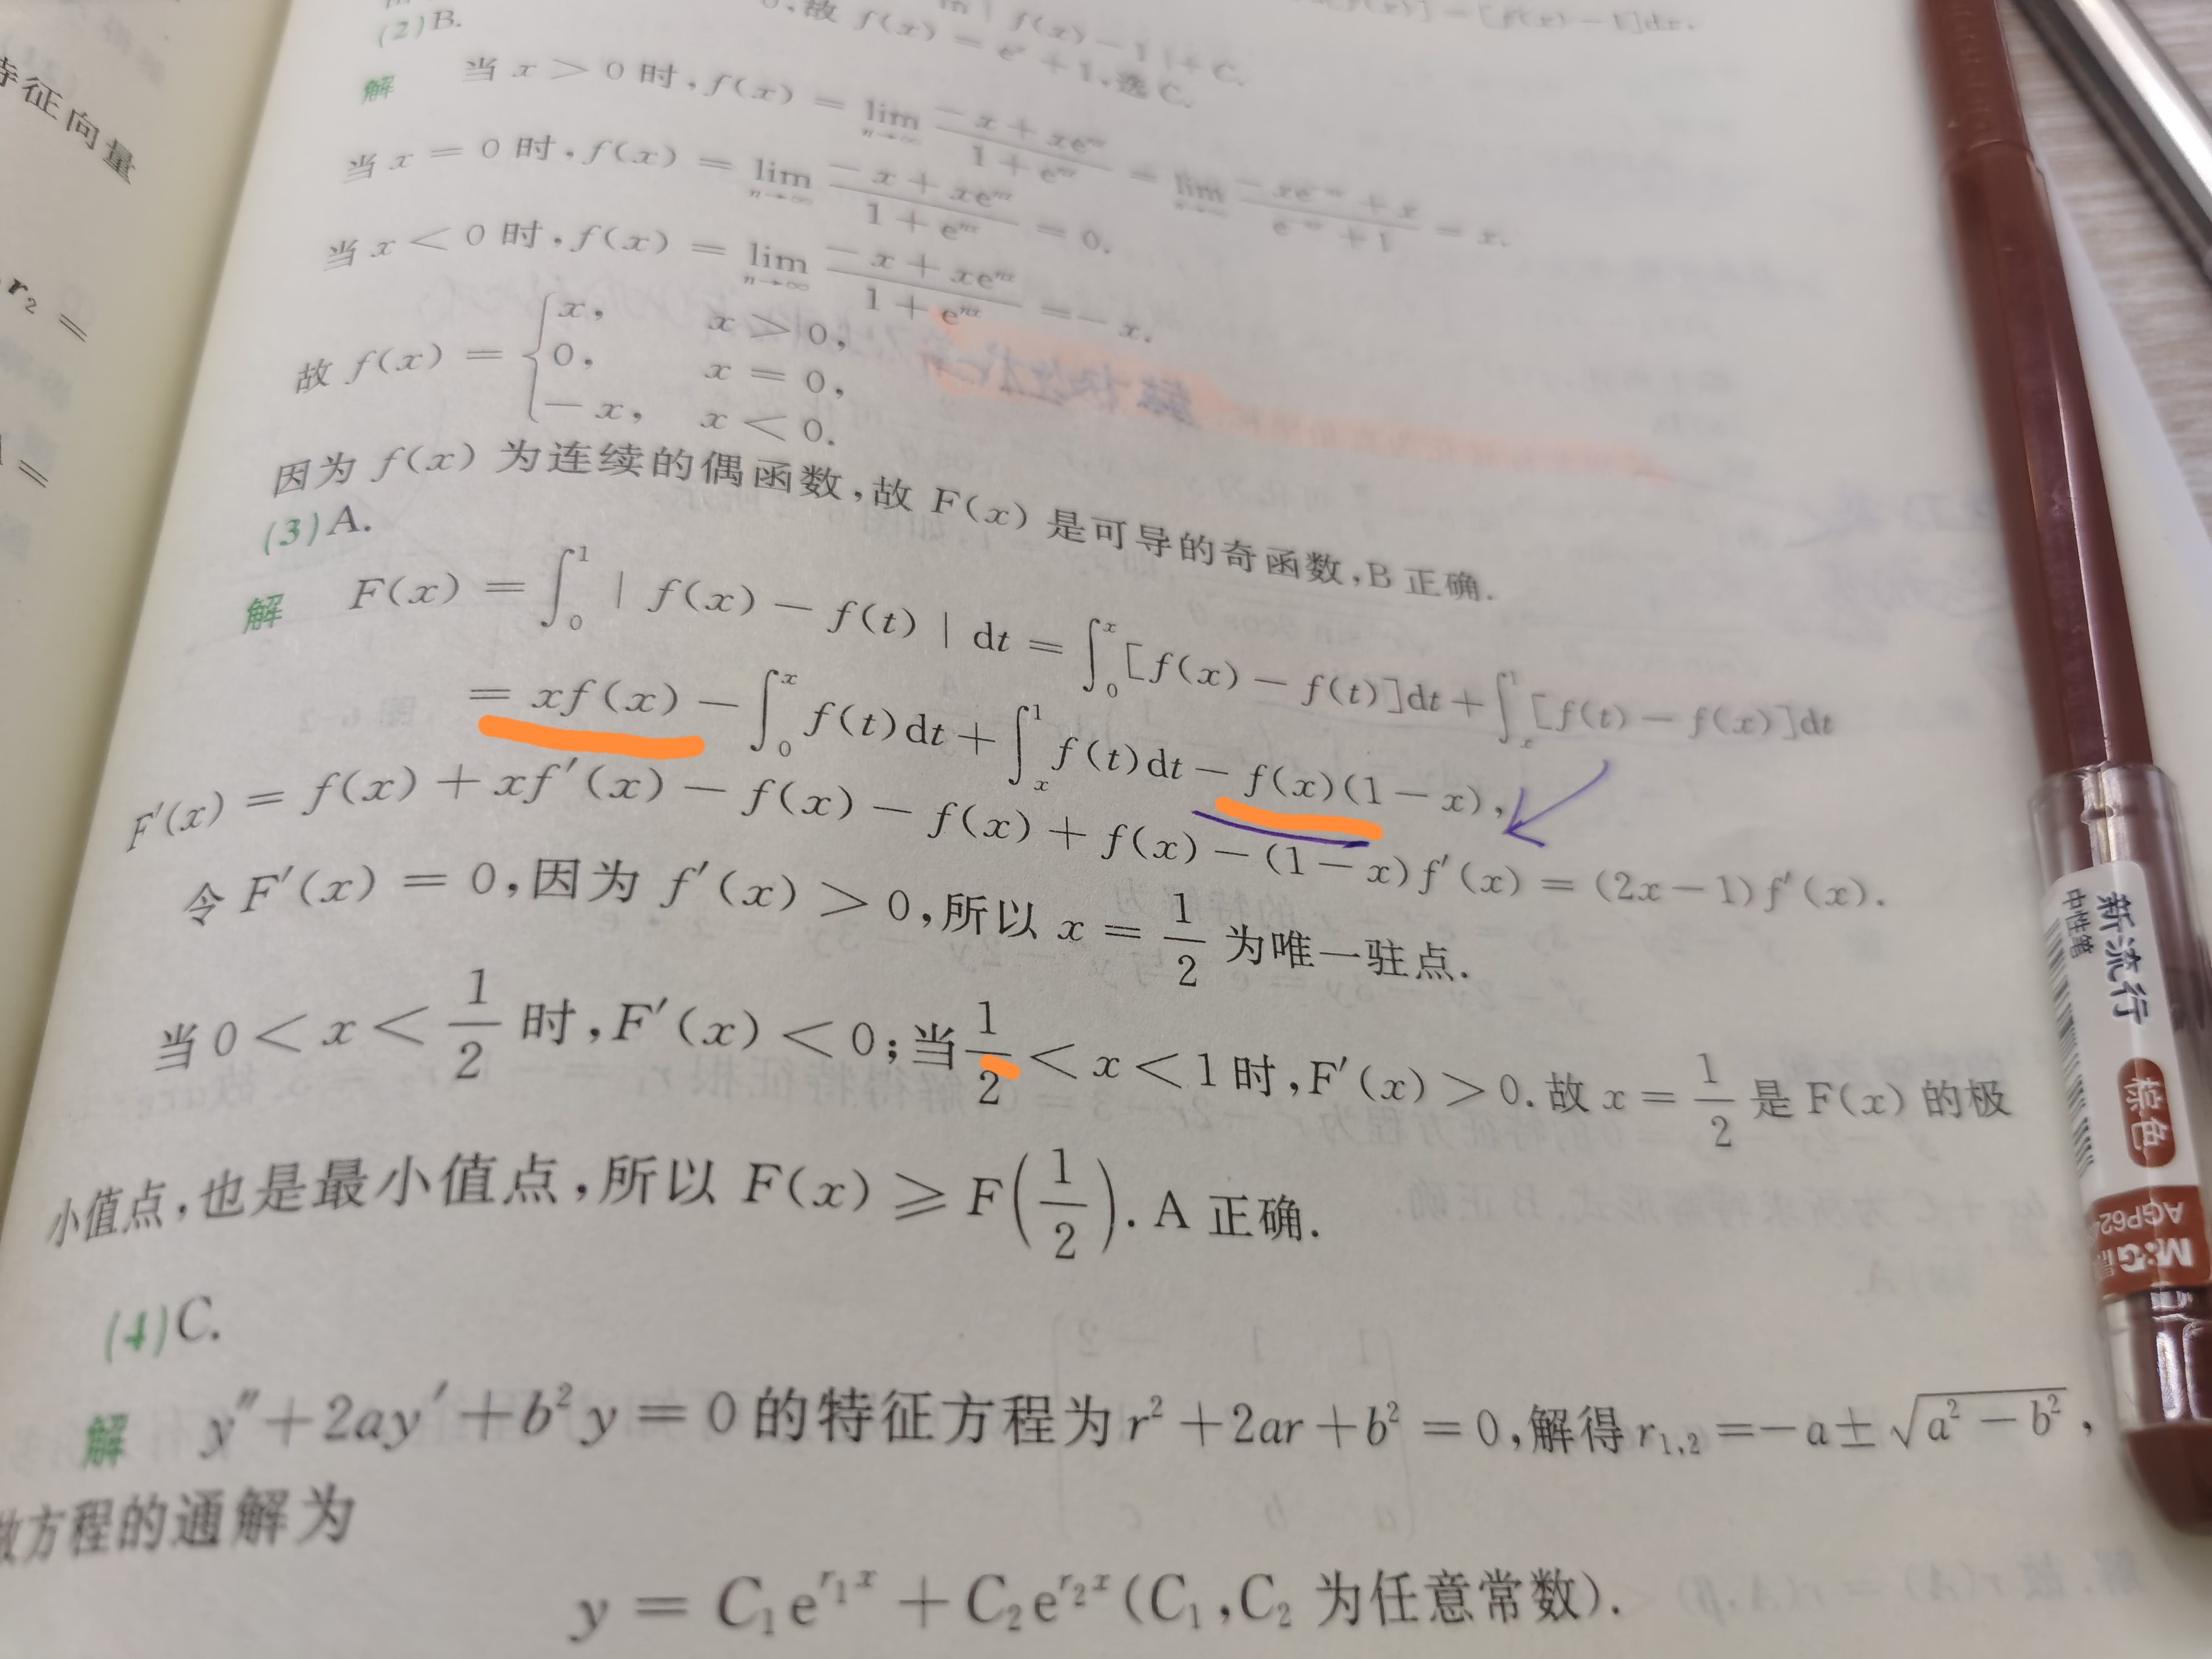 (2)B.
f(x) - 1 | + C.
故 f(x) = eˣ + 1, 选 C.
解 当 x > 0 时, f(x) = lim_{n→∞} (-x + xe^{nx})/(1 + e^{nx}) = lim_{n→∞} (-xe^{-nx} + x)/(e^{-nx} + 1) = x.
当 x = 0 时, f(x) = lim_{n→∞} (-x + xe^{nx})/(1 + e^{nx}) = 0.
当 x < 0 时, f(x) = lim_{n→∞} (-x + xe^{nx})/(1 + e^{nx}) = -x.
故 f(x) = { x, x > 0,
0, x = 0,
-x, x < 0.
因为 f(x) 为连续的偶函数,故 F(x) 是可导的奇函数,B 正确.
(3)A.
解 F(x) = ∫₀¹ | f(x) - f(t) | dt = ∫₀ˣ [f(x) - f(t)]dt + ∫ₓ¹ [f(t) - f(x)]dt
= xf(x) - ∫₀ˣ f(t)dt + ∫ₓ¹ f(t)dt - f(x)(1 - x),
F′(x) = f(x) + xf′(x) - f(x) - f(x) + f(x) - (1 - x)f′(x) = (2x - 1)f′(x).
令 F′(x) = 0,因为 f′(x) > 0,所以 x = 1/2 为唯一驻点.
当 0 < x < 1/2 时,F′(x) < 0;当 1/2 < x < 1 时,F′(x) > 0.故 x = 1/2 是 F(x) 的极
小值点,也是最小值点,所以 F(x) ⩾ F(1/2). A 正确.
(4)C.
解 y″ + 2ay′ + b²y = 0 的特征方程为 r² + 2ar + b² = 0,解得 r₁,₂ = -a ± √(a² - b²),
方程的通解为
y = C₁e^{r₁x} + C₂e^{r₂x} (C₁,C₂ 为任意常数).
特征向量
r₂ =
新流行
中性笔
棕色
M&G